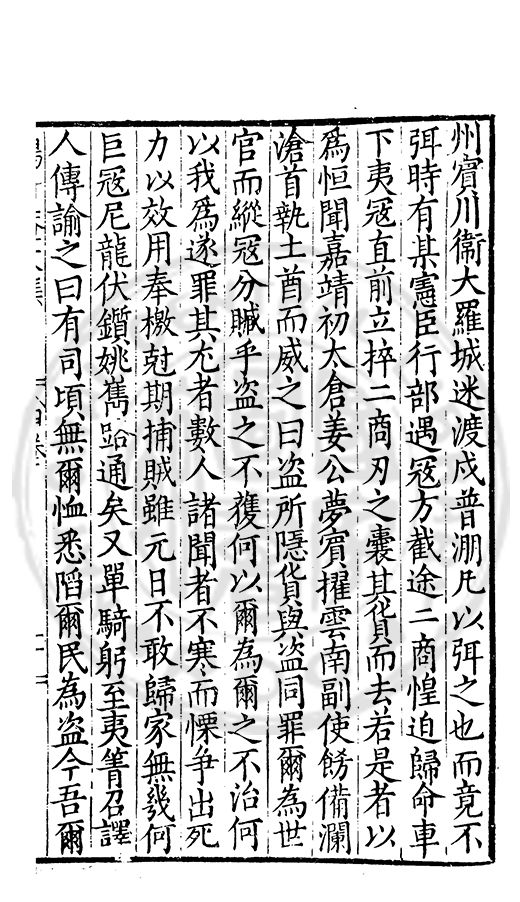 州賓川衞大羅城迷渡戍普淜凡以弭之也而竟不
弭時有某憲臣行部遇寇方截途二商惶迫歸命車
下夷寇直前立捽二商刃之囊其貨而去若是者以
爲恒聞嘉靖初太倉姜公夢賓擢雲南副使飭備瀾
滄首執土酋而威之曰盗所隱貨與盗同罪爾為世
官而縱寇分贓乎盗之不獲何以爾為爾之不治何
以我爲遂罪其尤者數人諸聞者不寒而慄爭出死
力以效用奉檄尅期捕賊雖元日不敢歸家無幾何
巨寇尼龍伏鑕姚嶲路通矣又單騎躬至夷箐召譯
人傳諭之曰有司頃無爾恤悉陷爾民為盗今吾爾